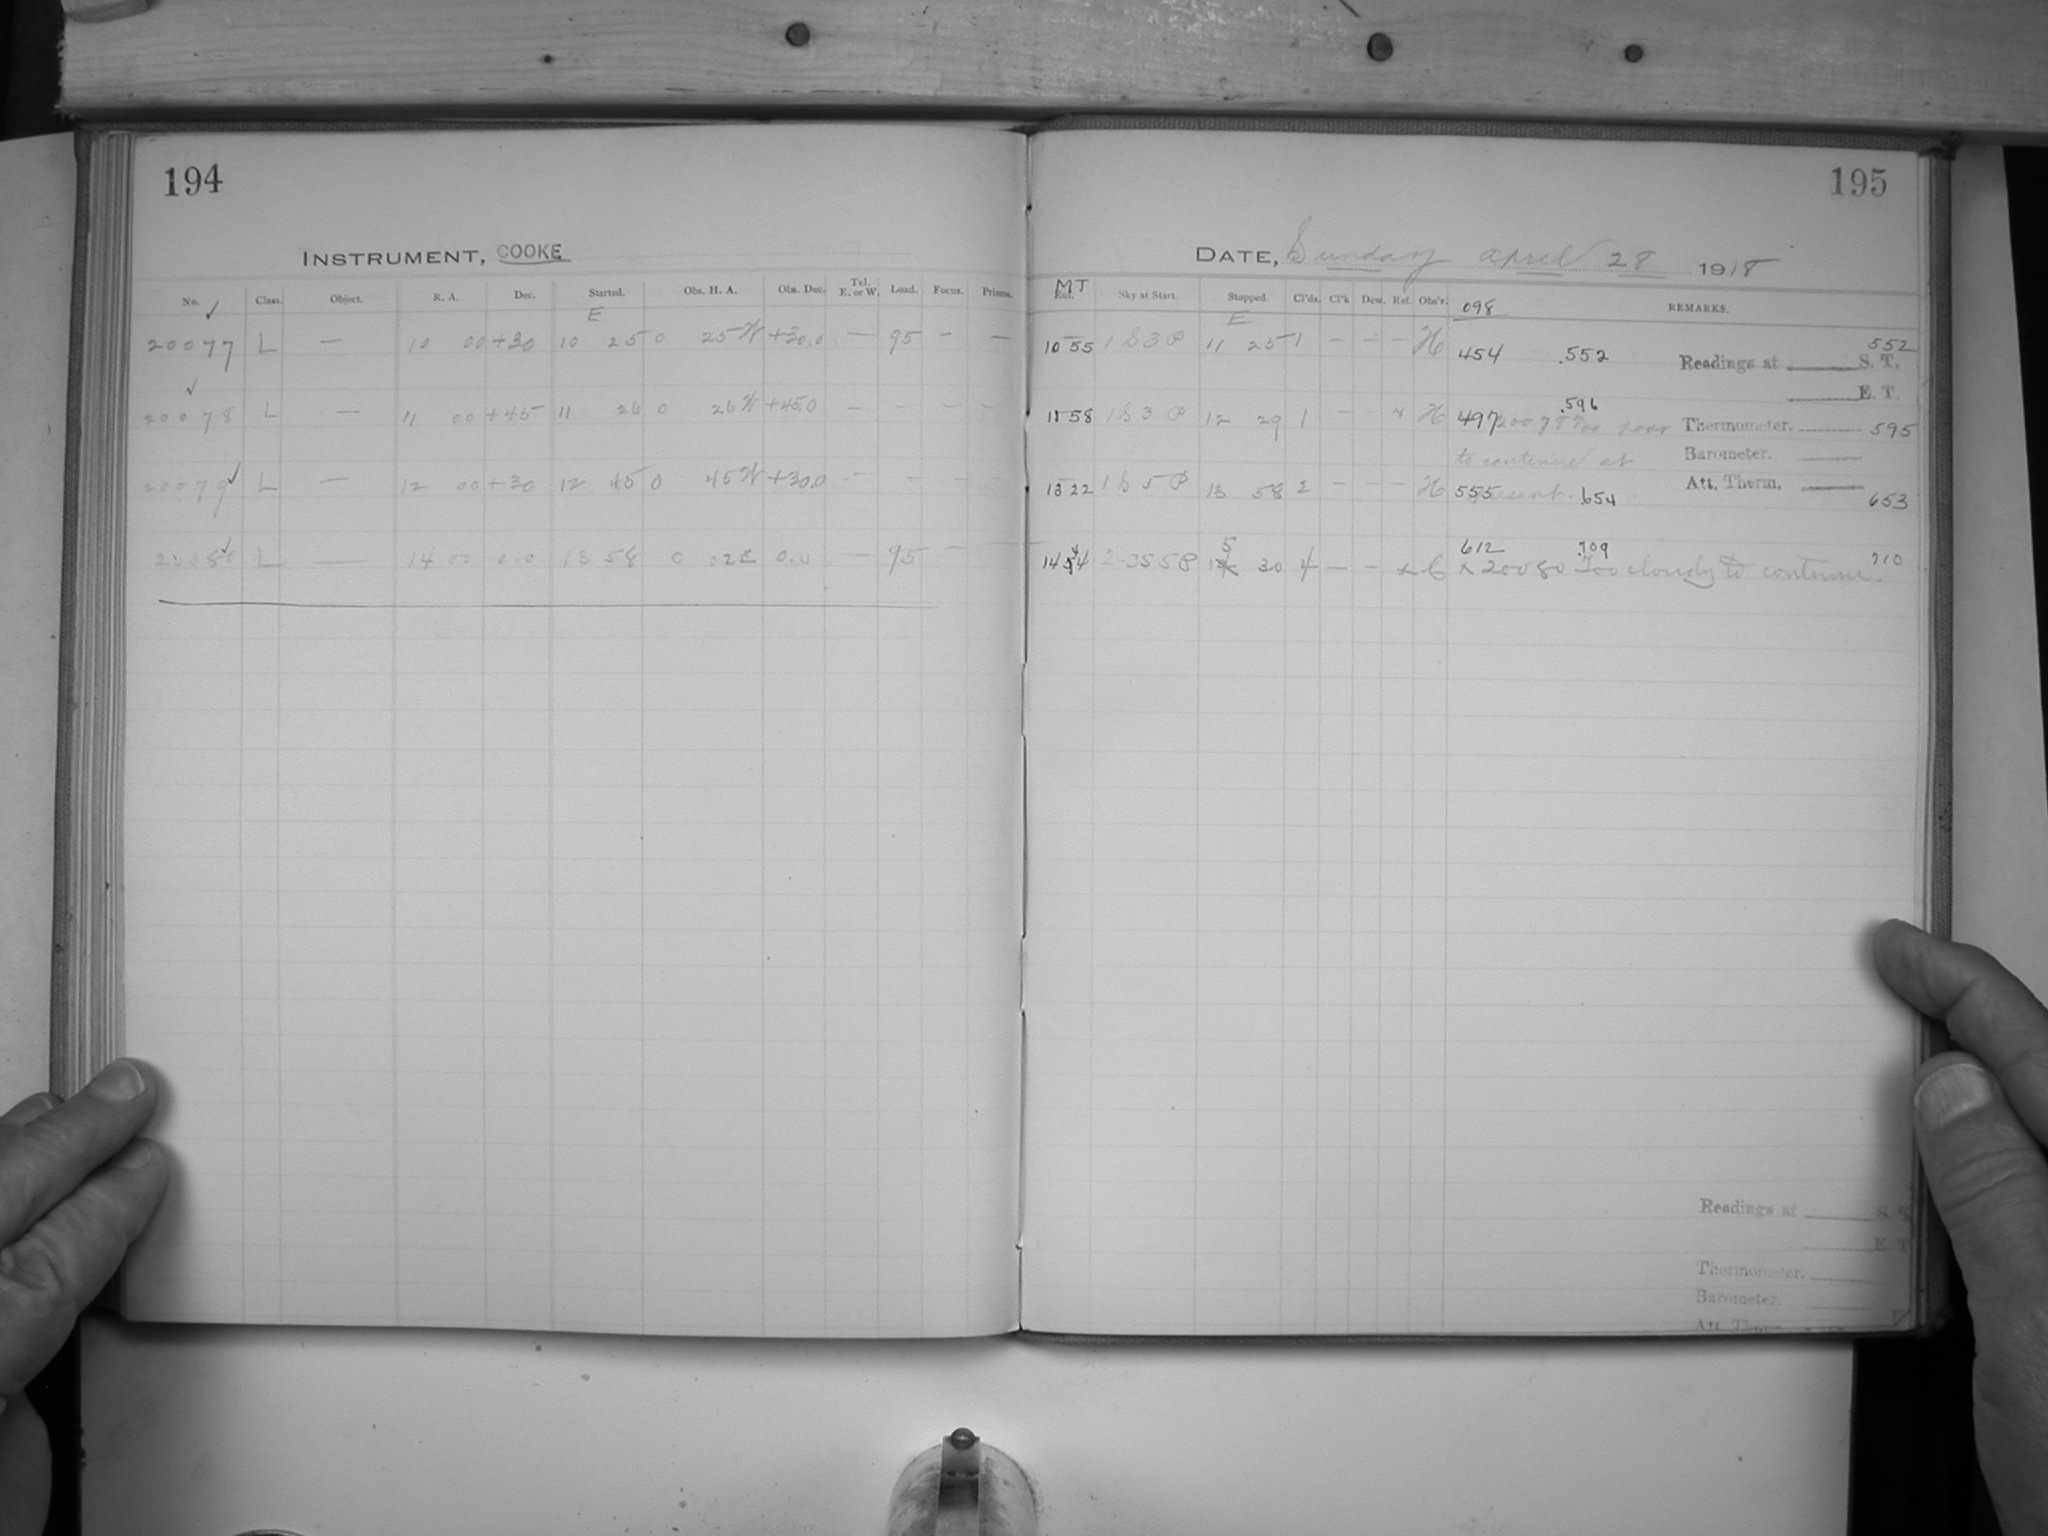 194
INSTRUMENT, COOKE
No. Class. Object. R. A. Dec. Started. Obs. H. A. Obs. Dec. Tel. E. or W. Load. Focus. Prisms.
E
20077 L — 10 00 +30 10 25 0 25 W +30.0 — 95 — —
20078 L — 11 00 +45 11 26 0 26 W +45.0 — — — —
20079 L — 12 00 +30 12 45 0 45 W +30.0 — — — —
20080 L — 14 00 0.0 13 58 0 02 E 0.0 — 95 — —
195
DATE, Sunday April 28 1918
MJ
Sky at Start. Stopped. Cl'ds. Cl'k Dew. Ref. Obs'r. 098 REMARKS.
E
10 55 1 S 3 P 11 25 1 — — — H 454 .552 552
Readings at S. T.
E. T.
.596
11 58 1 S 3 P 12 29 1 — — x H 497 20078 Too poor Thermometer. 595
to continue at Barometer.
13 22 1 S 5 P 13 58 2 — — — H 555 present. .654 Att. Therm. 653
612 .709 710
2-3 S 5 P 15 30 4 — — x C x 20080 Too cloudy to continue.
Readings at S. T
E. T
Thermometer.
Barometer.
Att. Therm.